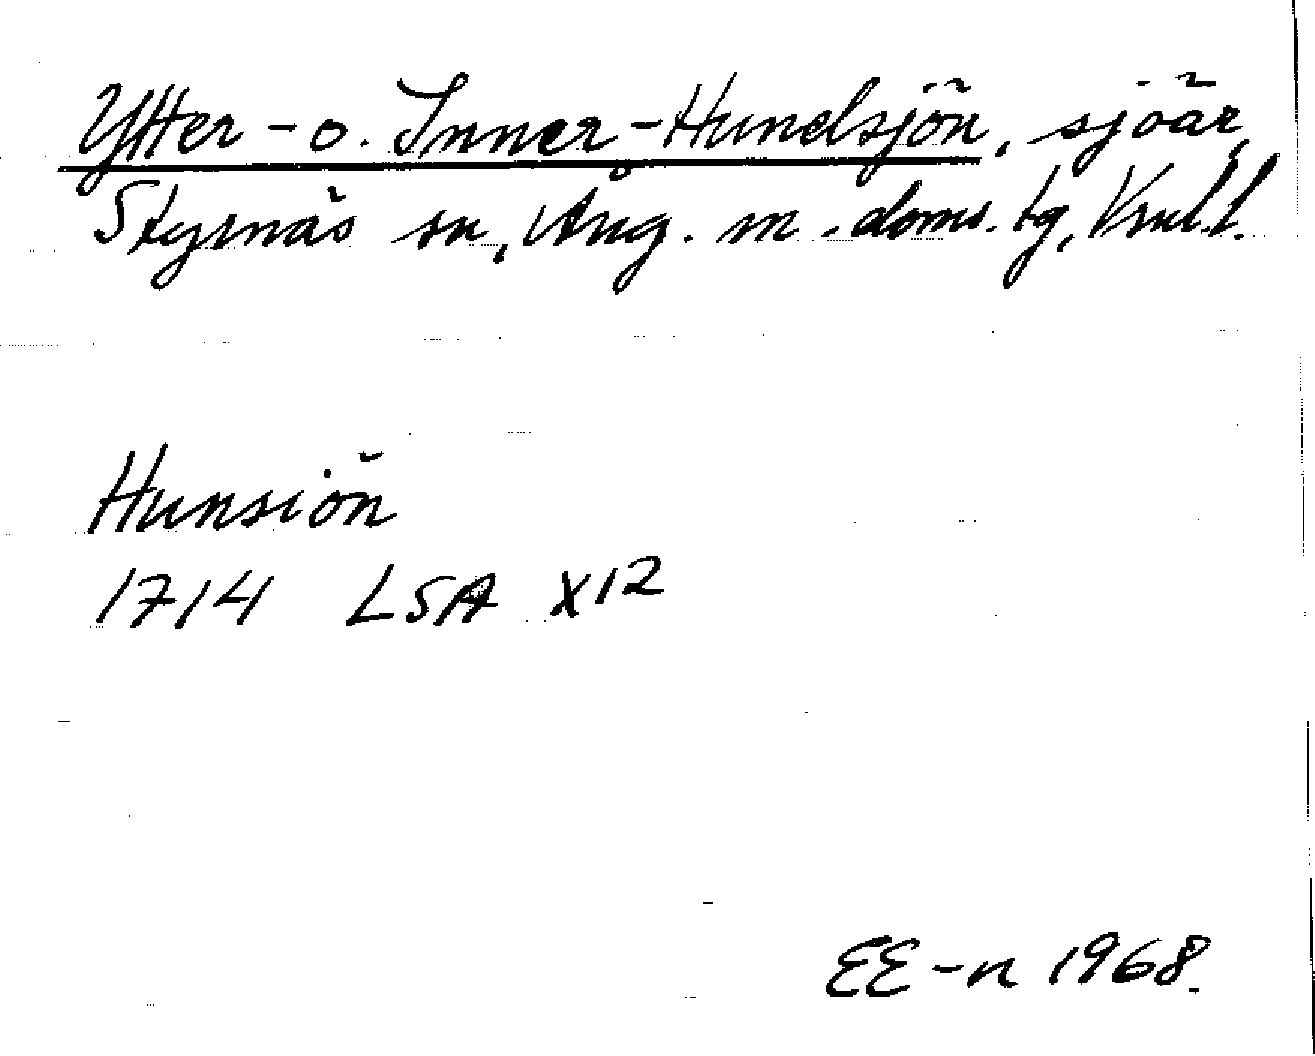 Ytter- o. Inner-Hundsjön, sjöar,
Styrnäs sn, Ång. m. doms. tg, Vnl.l.
Hunsiön
1714 LSA X12
EE-n 1968.